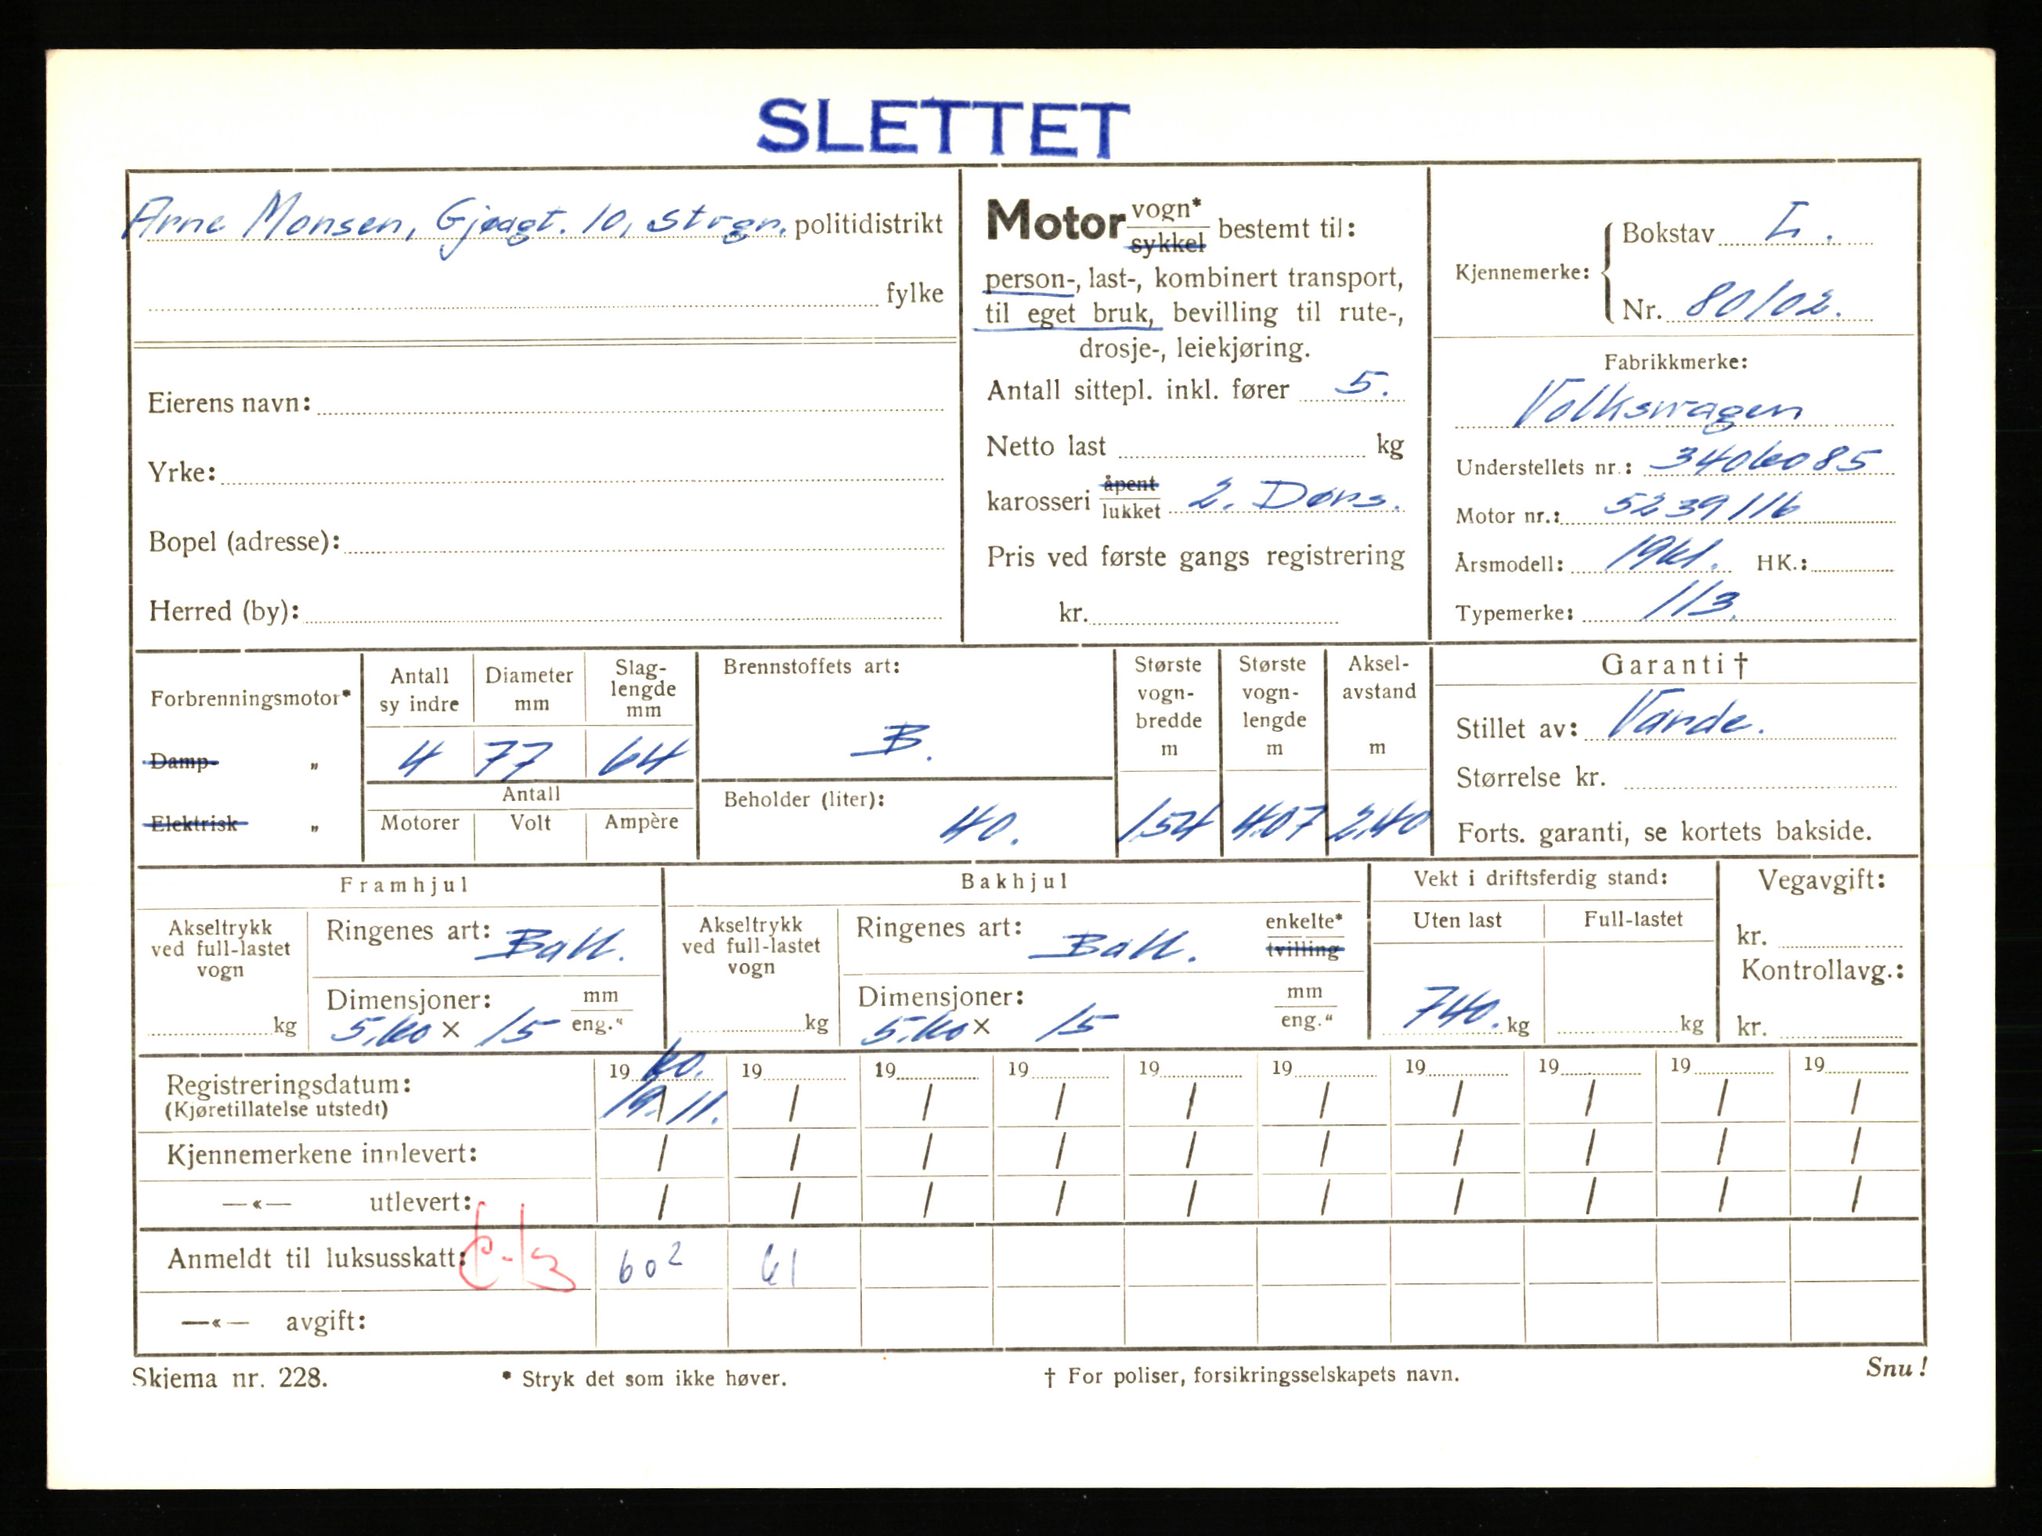 SLETTET
Arne Monsen, Gjøagt. 10, Strgn. politidistrikt
fylke
Eierens navn:
Yrke:
Bopel (adresse):
Herred (by):
Motor vogn* sykkel bestemt til:
person-, last-, kombinert transport,
til eget bruk, bevilling til rute-,
drosje-, leiekjøring.
Antall sittepl. inkl. fører 5.
Netto last kg
karosseri åpent lukket 2. Dørs.
Pris ved første gangs registrering
kr.
Kjennemerke: Bokstav L.
Nr. 80102.
Fabrikkmerke:
Volkswagen
Understellets nr.: 3406085
Motor nr.: 5239116
Årsmodell: 1961. HK.:
Typemerke: 113.
Forbrenningsmotor*
Damp "
Elektrisk "
Antall sy indre
Diameter mm
Slag-
lengde
mm
4 77 64
Antall
Motorer Volt Ampère
Brennstoffets art:
B.
Beholder (liter):
40.
Største
vogn-
bredde
m
1.54
Største
vogn-
lengde
m
4.07
Aksel-
avstand
m
2.40
Garanti†
Stillet av: Varde.
Størrelse kr.
Forts. garanti, se kortets bakside.
Framhjul
Akseltrykk
ved full-lastet
vogn
kg
Ringenes art: Ball.
Dimensjoner: mm
5.60 × 15 eng."
Bakhjul
Akseltrykk
ved full-lastet
vogn
kg
Ringenes art: Ball. enkelte* tvilling
Dimensjoner: mm
5.60 × 15 eng."
Vekt i driftsferdig stand:
Uten last Full-lastet
740. kg kg
Vegavgift:
kr.
Kontrollavg.:
kr.
Registreringsdatum: 19 60. 19 19 19 19 19 19 19 19 19
(Kjøretillatelse utstedt) 19/11. / / / / / / / / /
Kjennemerkene innlevert: / / / / / / / / / /
—«— utlevert: / / / / / / / / / /
Anmeldt til luksusskatt: 60² 61
—«— avgift:
Skjema nr. 228. * Stryk det som ikke høver. † For poliser, forsikringsselskapets navn. Snu!